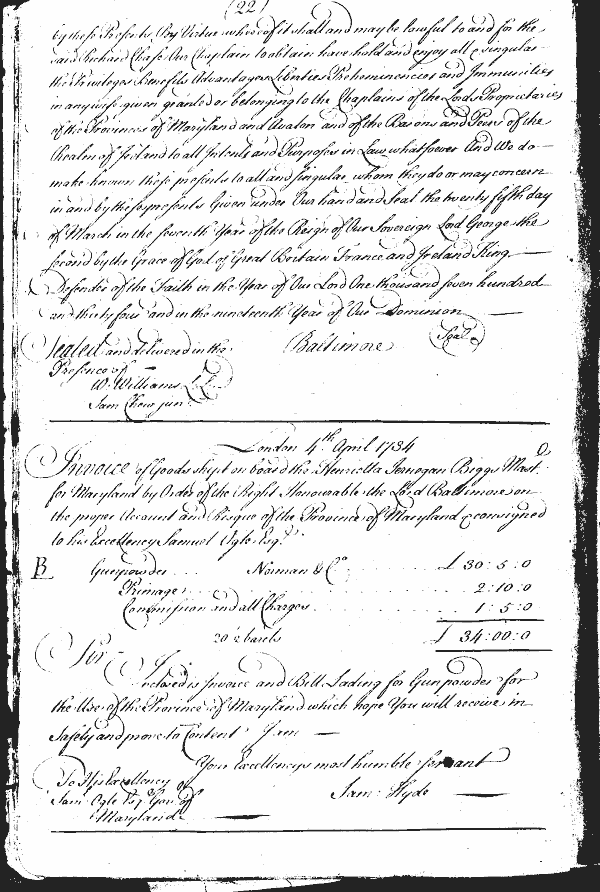 (22)
by these Presents, By Virtue whereof it shall and may be lawful to and for the
said Richard Chase Our Chaplain to obtain have hold and enjoy all & singular
the Privileges Benefits Advantages Liberties Preheminencees and Immunities
in any wise given granted or belonging to the Chaplains of the Lords Proprietaries
of the Provinces of Maryland and Avalon and of the Barons and Peers of the
Realm of Ireland to all Intents and Purposes in Law whatsoever And We do
make known these presents to all and singular whom they do or may concern
in and by these presents Given under Our hand and Seal the twenty fifth day
of March in the seventh Year of the Reign of Our Sovereign Lord George the
second by the Grace of God of Great Britain France and Ireland King
Defender of the Faith in the Year of Our Lord One thousand seven hundred
and thirty four and in the nineteenth Year of Our Dominion
Sealed and delivered in the Baltimore Seal
Presence of
W. Williams
Sam Chew jun
London 4th April 1734
Invoice of Goods shipt on board the Henrietta Jernegan Briggs Mastr
for Maryland by Order of the Right Honourable the Lord Baltimore on
the proper Account and Risque of the Province of Maryland & consigned
to his Excellency Samuel Ogle Esqr
B Gunpowder . . . Norman & Co . . . £ 30:5:0
Primage . . . 2:10:0
Commission and all Charges . . . 1:5:0
20 ½ barels £ 34:00:0
Sir
Inclosed is Invoice and Bill Lading for Gunpowder for
the Use of the Province of Maryland which hope You will receive in
Safety and prove to Content I am
Your Excellencys most humble Servant
To His Excellency Sam: Hyde
Sam: Ogle Esqr Govr of
Maryland